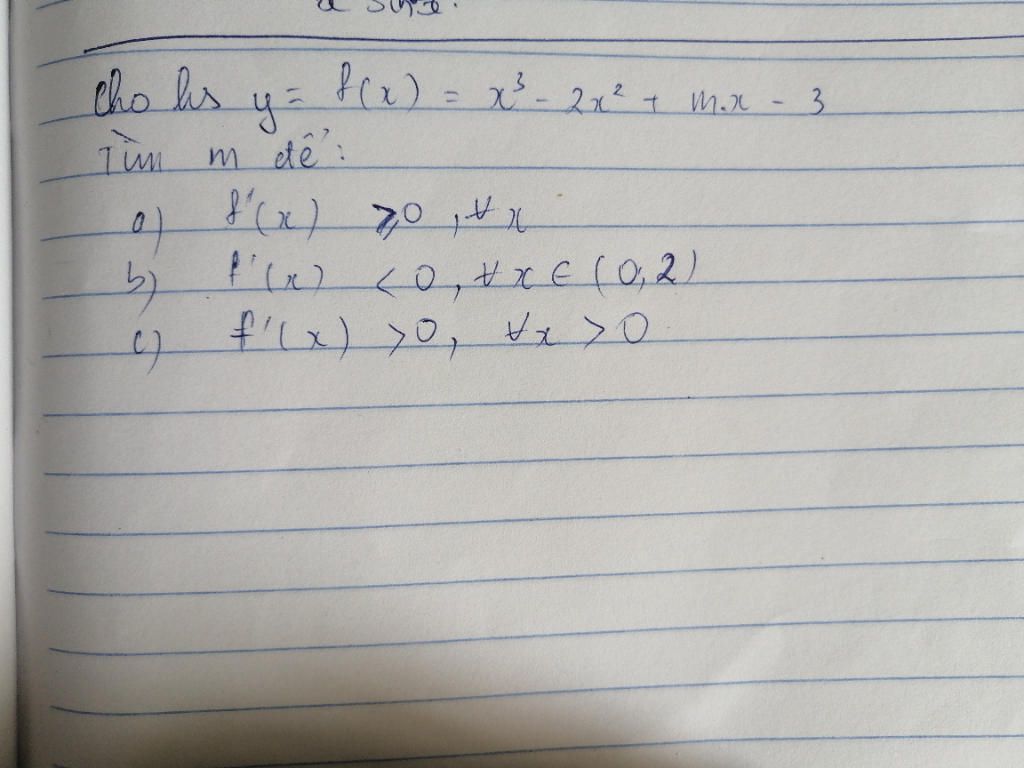 Cho hs y = f(x) = x³ - 2x² + m.x - 3
Tìm m để:
a) f'(x) ⩾ 0, ∀x
b) f'(x) < 0, ∀x ∈ (0; 2)
c) f'(x) > 0, ∀x > 0